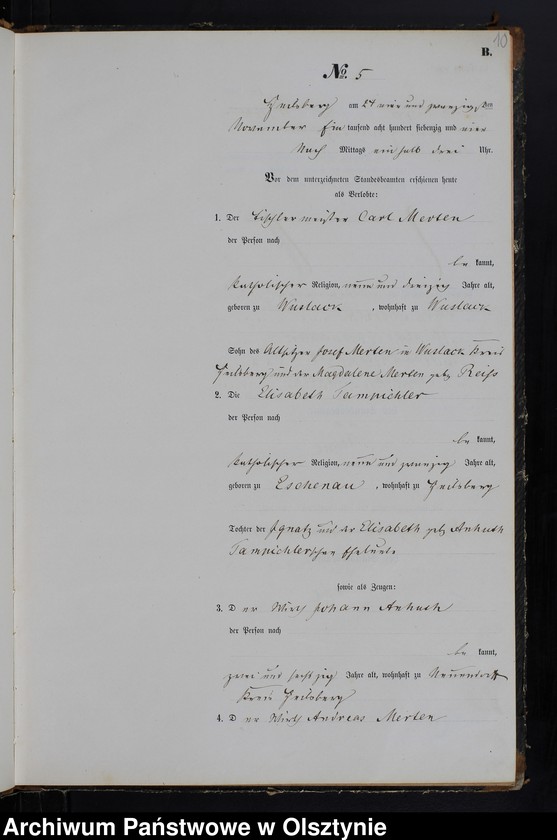 10
B.
No. 5
Heilsberg am 24 vier und zwanzigsten
November Ein tausend acht hundert siebenzig und vier
Nach Mittags ein halb drei Uhr.
Vor dem unterzeichneten Standesbeamten erschienen heute
als Verlobte:
1. Der Tischlermeister Carl Merten
der Person nach
be kannt,
katholischer Religion, neun und dreizig Jahre alt,
geboren zu Wuslack, wohnhaft zu Wuslack
Sohn des Altsitzer Josef Merten in Wuslack Kreis
Heilsberg und der Magdalene Merten geb Reiss
2. Die Elisabeth Tampichler
der Person nach
be kannt,
katholischer Religion, neun und zwanzig Jahre alt,
geboren zu Eschenau, wohnhaft zu Heilsberg
Tochter der Ignatz und der Elisabeth geb Anhuth
Tampichlerschen Eheleute
sowie als Zeugen:
3. D er Wirth Johann Anhuth
der Person nach
be kannt,
zwei und sechszig Jahre alt, wohnhaft zu Neuendorff
Kreis Heilsberg
4. D er Wirth Andreas Merten
Archiwum Państwowe w Olsztynie